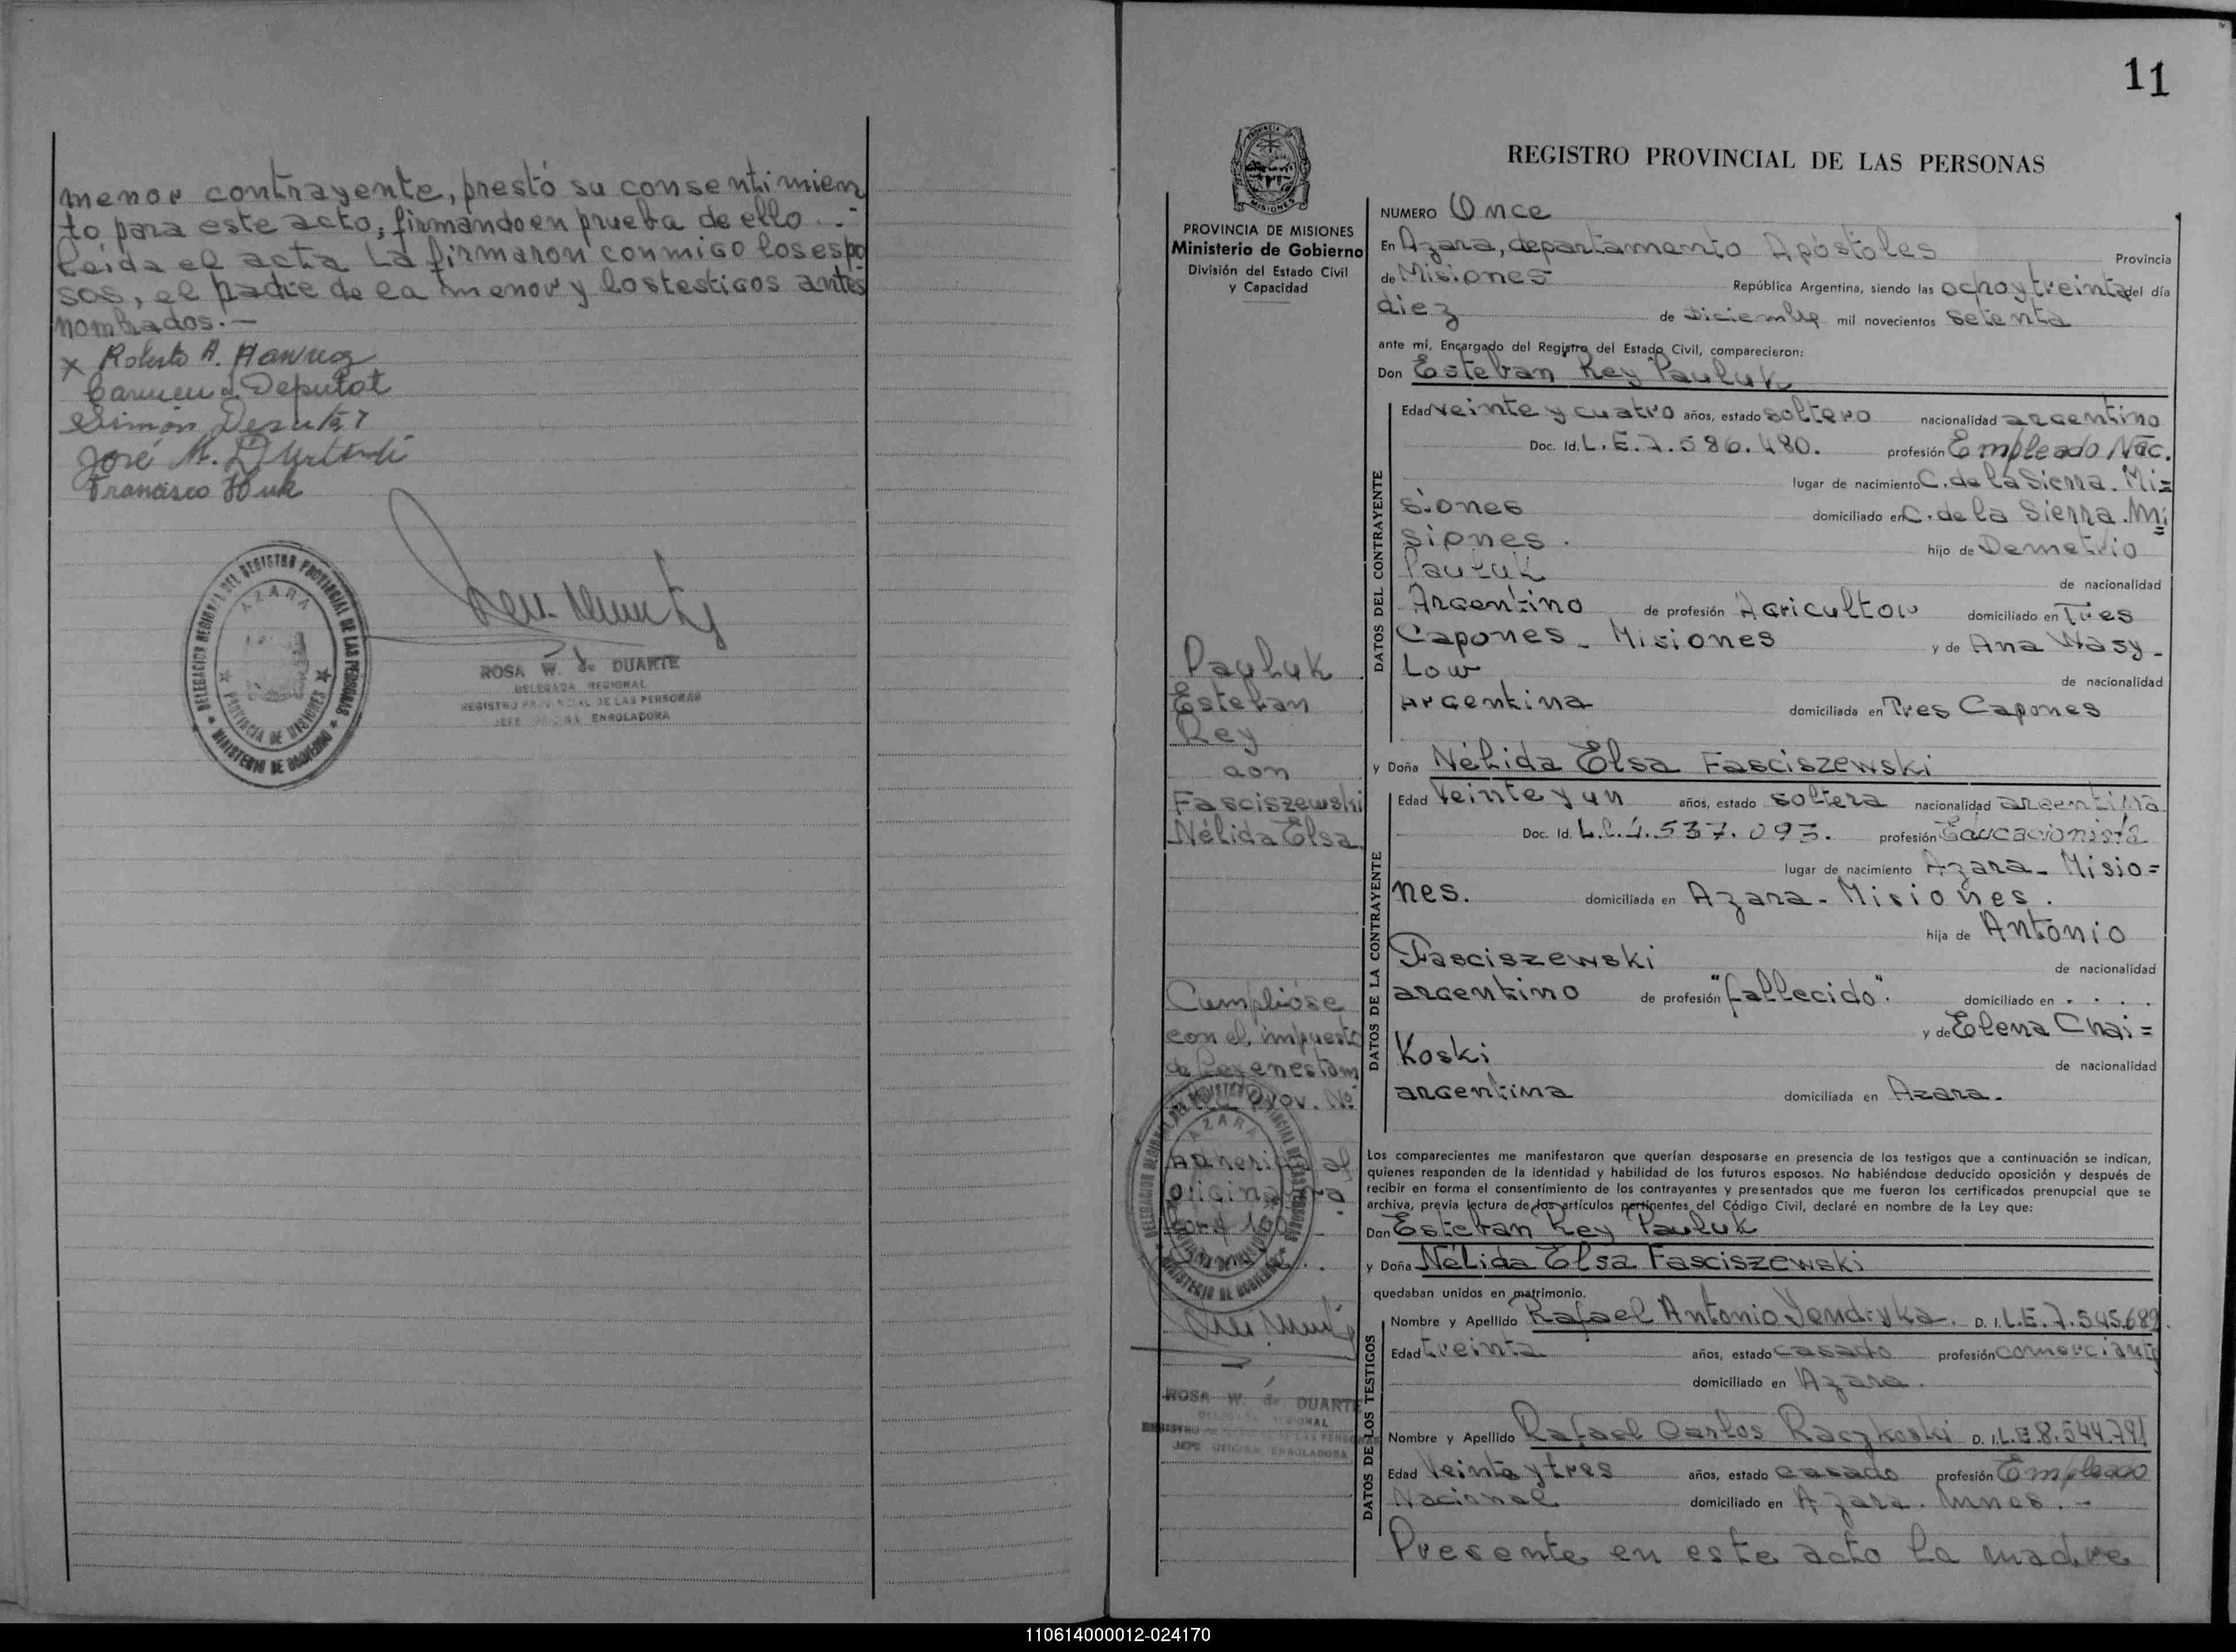 menor contrayente, prestó su consentimien
to para este acto, firmando en prueba de ello. -
Leída el acta La firmaron conmigo los espo
sos, el padre de la menor y los testigos antes
nombrados. -
x Roberto A.
Carmen Deputat
Simón
José M.
Francisco
DELEGACION REGIONAL DEL REGISTRO PROVINCIAL DE LAS PERSONAS
AZARA
PROVINCIA DE MISIONES
MINISTERIO DE GOBIERNO
ROSA W. de DUARTE
DELEGADA REGIONAL
REGISTRO PROVINCIAL DE LAS PERSONAS
JEFE OFICINA ENROLADORA
11
REGISTRO PROVINCIAL DE LAS PERSONAS
PROVINCIA DE MISIONES
Ministerio de Gobierno
División del Estado Civil
y Capacidad
NUMERO Once
En Azara, departamento Apóstoles Provincia
de Misiones República Argentina, siendo las ocho y treinta del día
diez de Diciembre mil novecientos setenta
ante mí, Encargado del Registro del Estado Civil, comparecieron:
Don Esteban Rey Pauluk
DATOS DEL CONTRAYENTE
Edad veinte y cuatro años, estado soltero nacionalidad argentino
Doc. Id. L.E. 7.586.480. profesión Empleado Nac.
lugar de nacimiento C. de la Sierra. Mi=
siones domiciliado en C. de la Sierra. Mi=
siones. hijo de Demetrio
Pauluk de nacionalidad
Argentino de profesión Agricultor domiciliado en Tres
Capones - Misiones y de Ana Wasy-
Low de nacionalidad
argentina domiciliada en Tres Capones
Pauluk
Esteban
Rey
con
Fasciszewski
Nélida Elsa
y Doña Nélida Elsa Fasciszewski
DATOS DE LA CONTRAYENTE
Edad Veinte y un años, estado soltera nacionalidad argentina
Doc. Id. L.C. 537.093. profesión Educacionista
lugar de nacimiento Azara - Misio=
nes. domiciliada en Azara - Misiones.
hija de Antonio
Fasciszewski de nacionalidad
argentino de profesión "fallecido". domiciliado en . . . .
y de Elena Chai=
Koski de nacionalidad
argentina domiciliada en Azara.
Cumplióse
con el impuesto
de Ley en estam
Prov. Nº
Adherida al
ROSA W. de DUARTE
DELEGADA REGIONAL
REGISTRO PROVINCIAL DE LAS PERSONAS
JEFE OFICINA ENROLADORA
Los comparecientes me manifestaron que querían desposarse en presencia de los testigos que a continuación se indican,
quienes responden de la identidad y habilidad de los futuros esposos. No habiéndose deducido oposición y después de
recibir en forma el consentimiento de los contrayentes y presentados que me fueron los certificados prenupcial que se
archiva, previa lectura de los artículos pertinentes del Código Civil, declaré en nombre de la Ley que:
Don Esteban Rey Pauluk
y Doña Nélida Elsa Fasciszewski
quedaban unidos en matrimonio.
DATOS DE LOS TESTIGOS
Nombre y Apellido Rafael Antonio Yendryka. D. I. L.E. 7.545.689.
Edad treinta años, estado casado profesión comerciante
domiciliado en Azara.
Nombre y Apellido Rafael Carlos Raczkoski D. I. L.E. 8.544.791
Edad Veinte y tres años, estado casado profesión Empleado
Nacional domiciliado en Azara. Mnes. -
Presente en este acto la madre
110614000012-024170